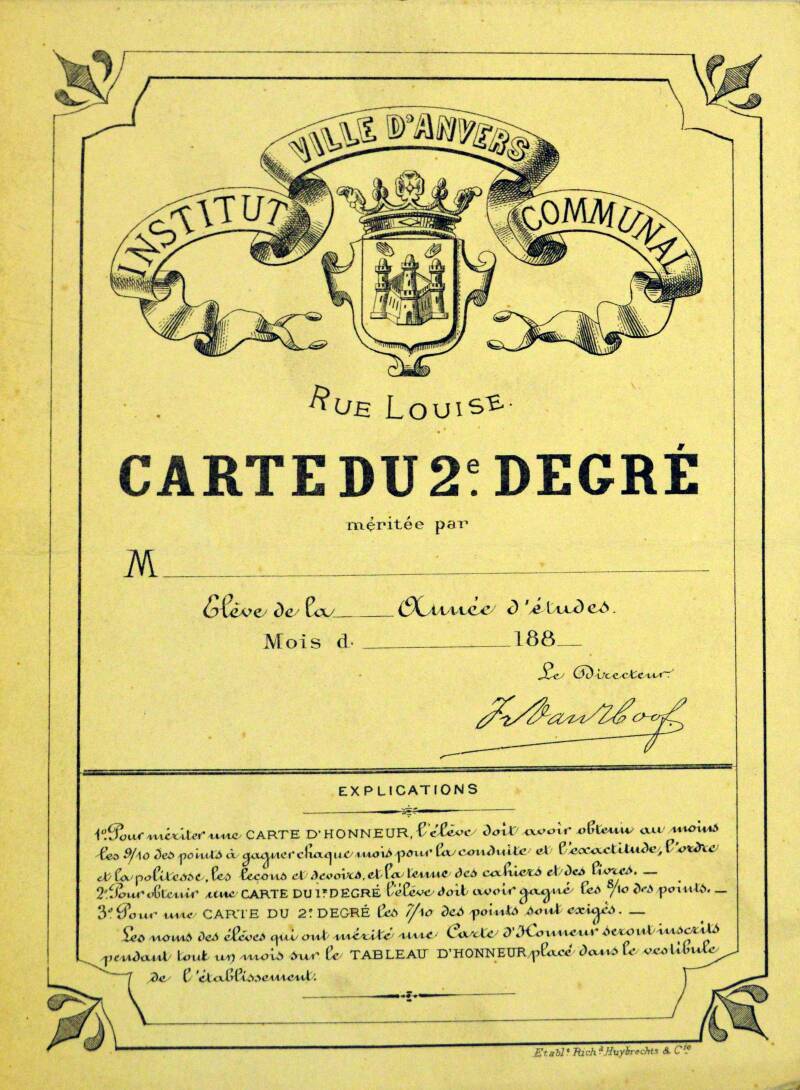 VILLE D'ANVERS
INSTITUT COMMUNAL
RUE LOUISE.
CARTE DU 2e. DEGRÉ
méritée par
M
Elève de la ____ Année d'études.
Mois d. ____ 188_
Le Directeur
Fr Van Hoof
EXPLICATIONS
1o. Pour mériter une CARTE D'HONNEUR, l'élève doit avoir obtenu au moins
les 9/10 des points à gagner chaque mois pour la conduite et l'exactitude, l'ordre
et la politesse, les leçons et devoirs, et la tenue des cahiers et des livres. —
2o. Pour obtenir une CARTE DU 1r DEGRÉ l'élève doit avoir gagné les 8/10 des points. —
3o Pour une CARTE DU 2e DEGRÉ les 7/10 des points sont exigés. —
Les noms des élèves qui ont mérité une Carte d'Honneur seront inscrits
pendant tout un mois sur le TABLEAU D'HONNEUR, placé dans le vestibule
de l'établissement.
Etablt. Richd. Huybrechts & Cie